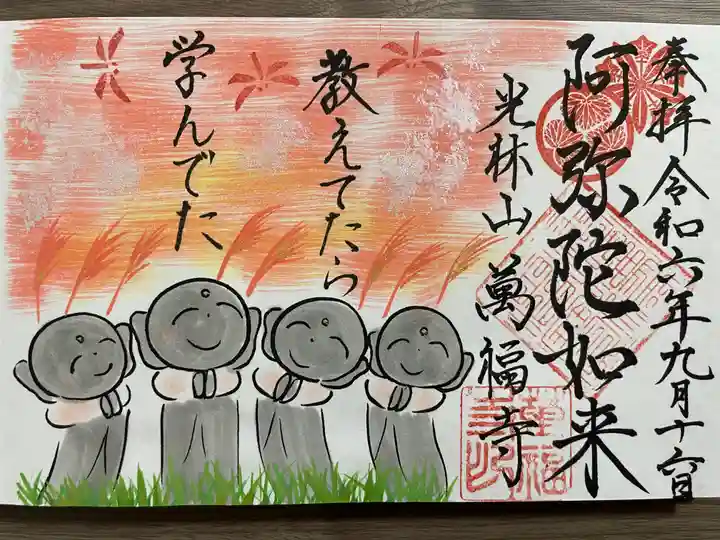 奉拝 令和六年九月十六日
阿弥陀如来
光林山 萬福寺
教えてたら
学んでた